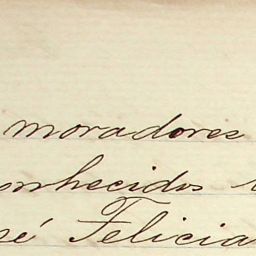 moradores
onhecidos
sé Felicia